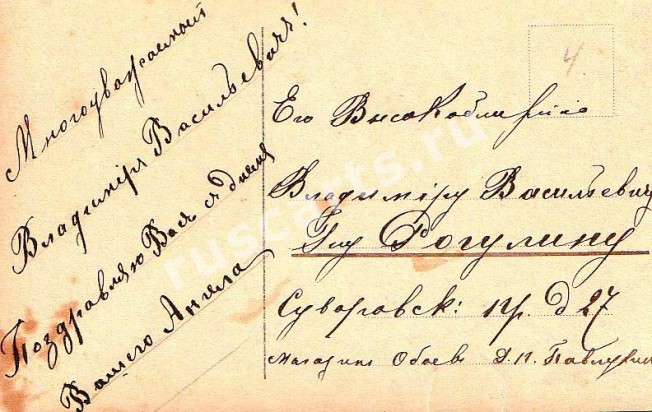 Многоуважаемый
Владиміръ Васильевичъ!
Поздравляю Васъ съ днемъ
Вашего Ангела
4
Его Высокоблагородію
Владиміру Васильевичу
Гну Рогулину
Суворовск: пр. д 27
Магазинъ Обоевъ Д. П.
ruscarts.ru